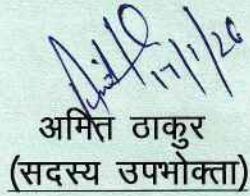 17/1/26
अमित ठाकुर
(सदस्य उपभोक्ता)